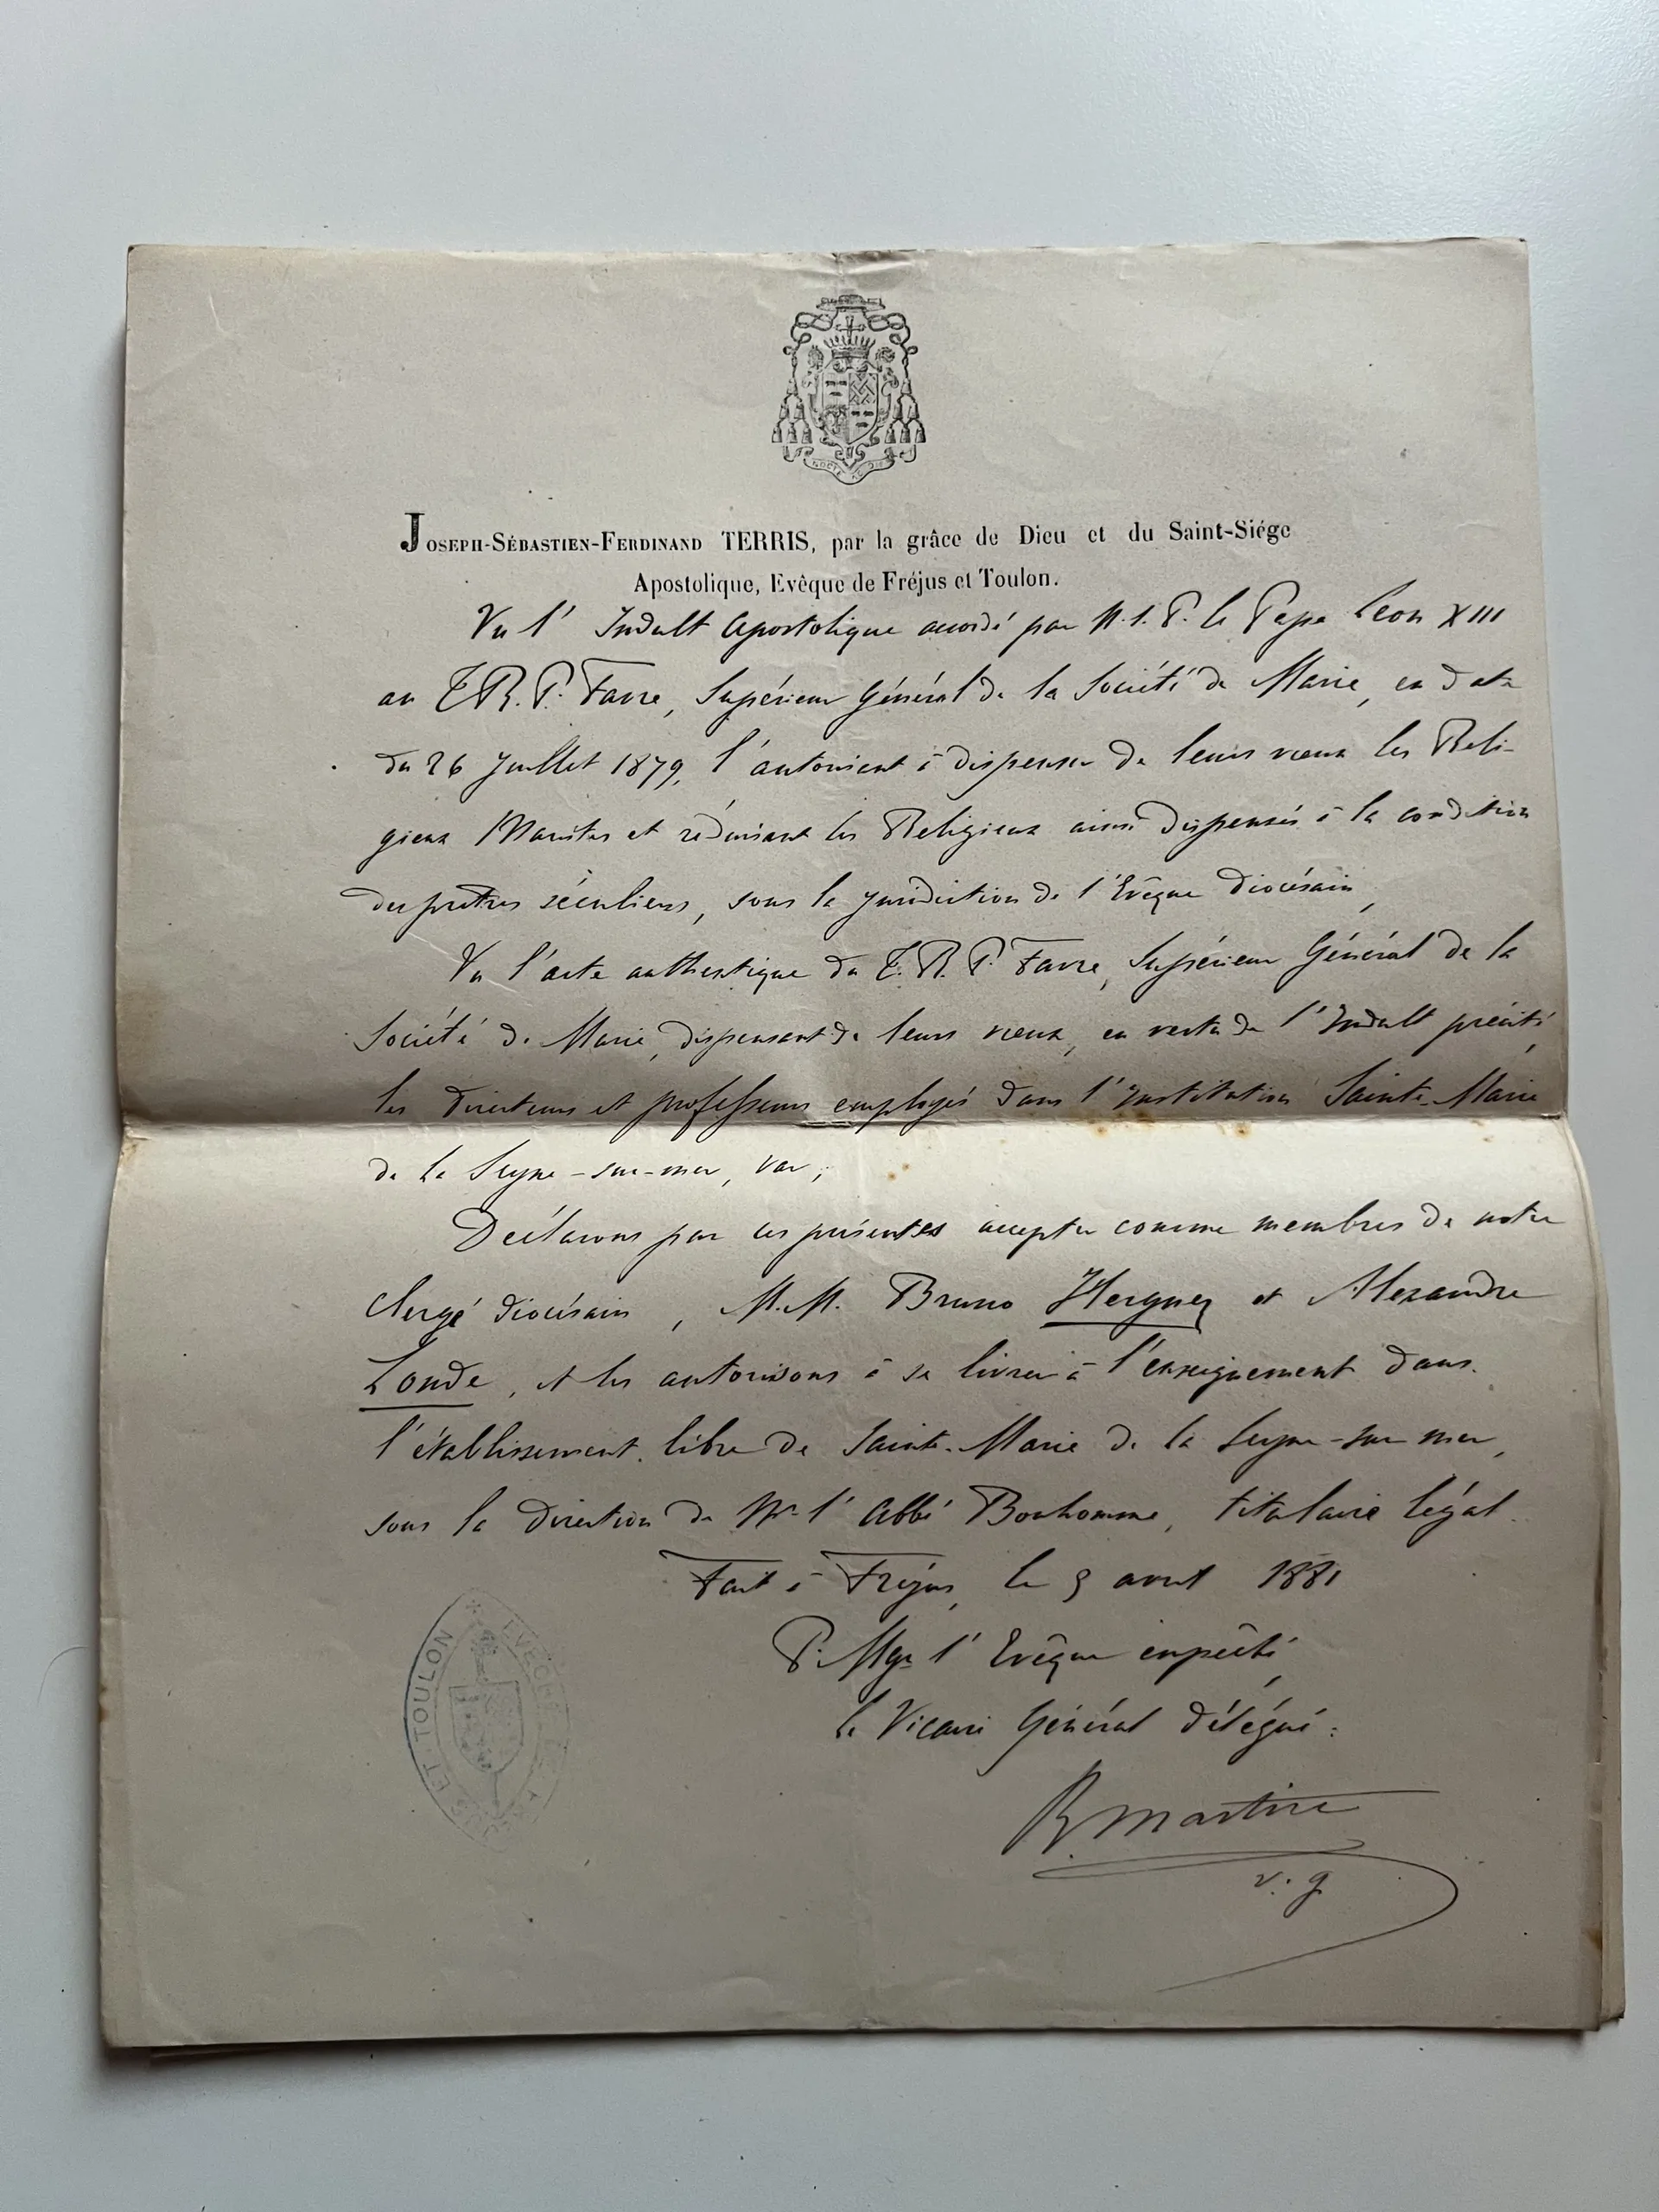 JOSEPH-SÉBASTIEN-FERDINAND TERRIS, par la grâce de Dieu et du Saint-Siége
Apostolique, Evêque de Fréjus et Toulon.
Vu l'Indult Apostolique accordé par N.S.P. le Pape Léon XIII
au T.R.P. Favre, Supérieur Général de la Société de Marie, en date
du 26 Juillet 1879, l'autorisant à dispenser de leurs vœux les Reli-
gieux Maristes et réduisant les Religieux ainsi dispensés à la condition
des prêtres séculiers, sous la juridiction de l'Evêque diocésain,
Vu l'acte authentique du T.R.P. Favre, Supérieur Général de la
Société de Marie, dispensant de leurs vœux, en vertu de l'Indult précité,
les directeurs et professeurs employés dans l'Institution Sainte-Marie
de La Seyne-sur-mer, Var;
Déclarons par ces présentes accepter comme membres de notre
clergé diocésain, M.M. Bruno et Alexandre
Londe, et les autorisons à se livrer à l'enseignement dans
l'établissement libre de Sainte-Marie de la Seyne-sur mer,
sous la direction de Mr l'Abbé Bonhomme, titulaire légal.
Fait à Fréjus, le avril 1881
P. Mgr l'Evêque empêché,
le Vicaire Général délégué:
v.g
ET TOULON